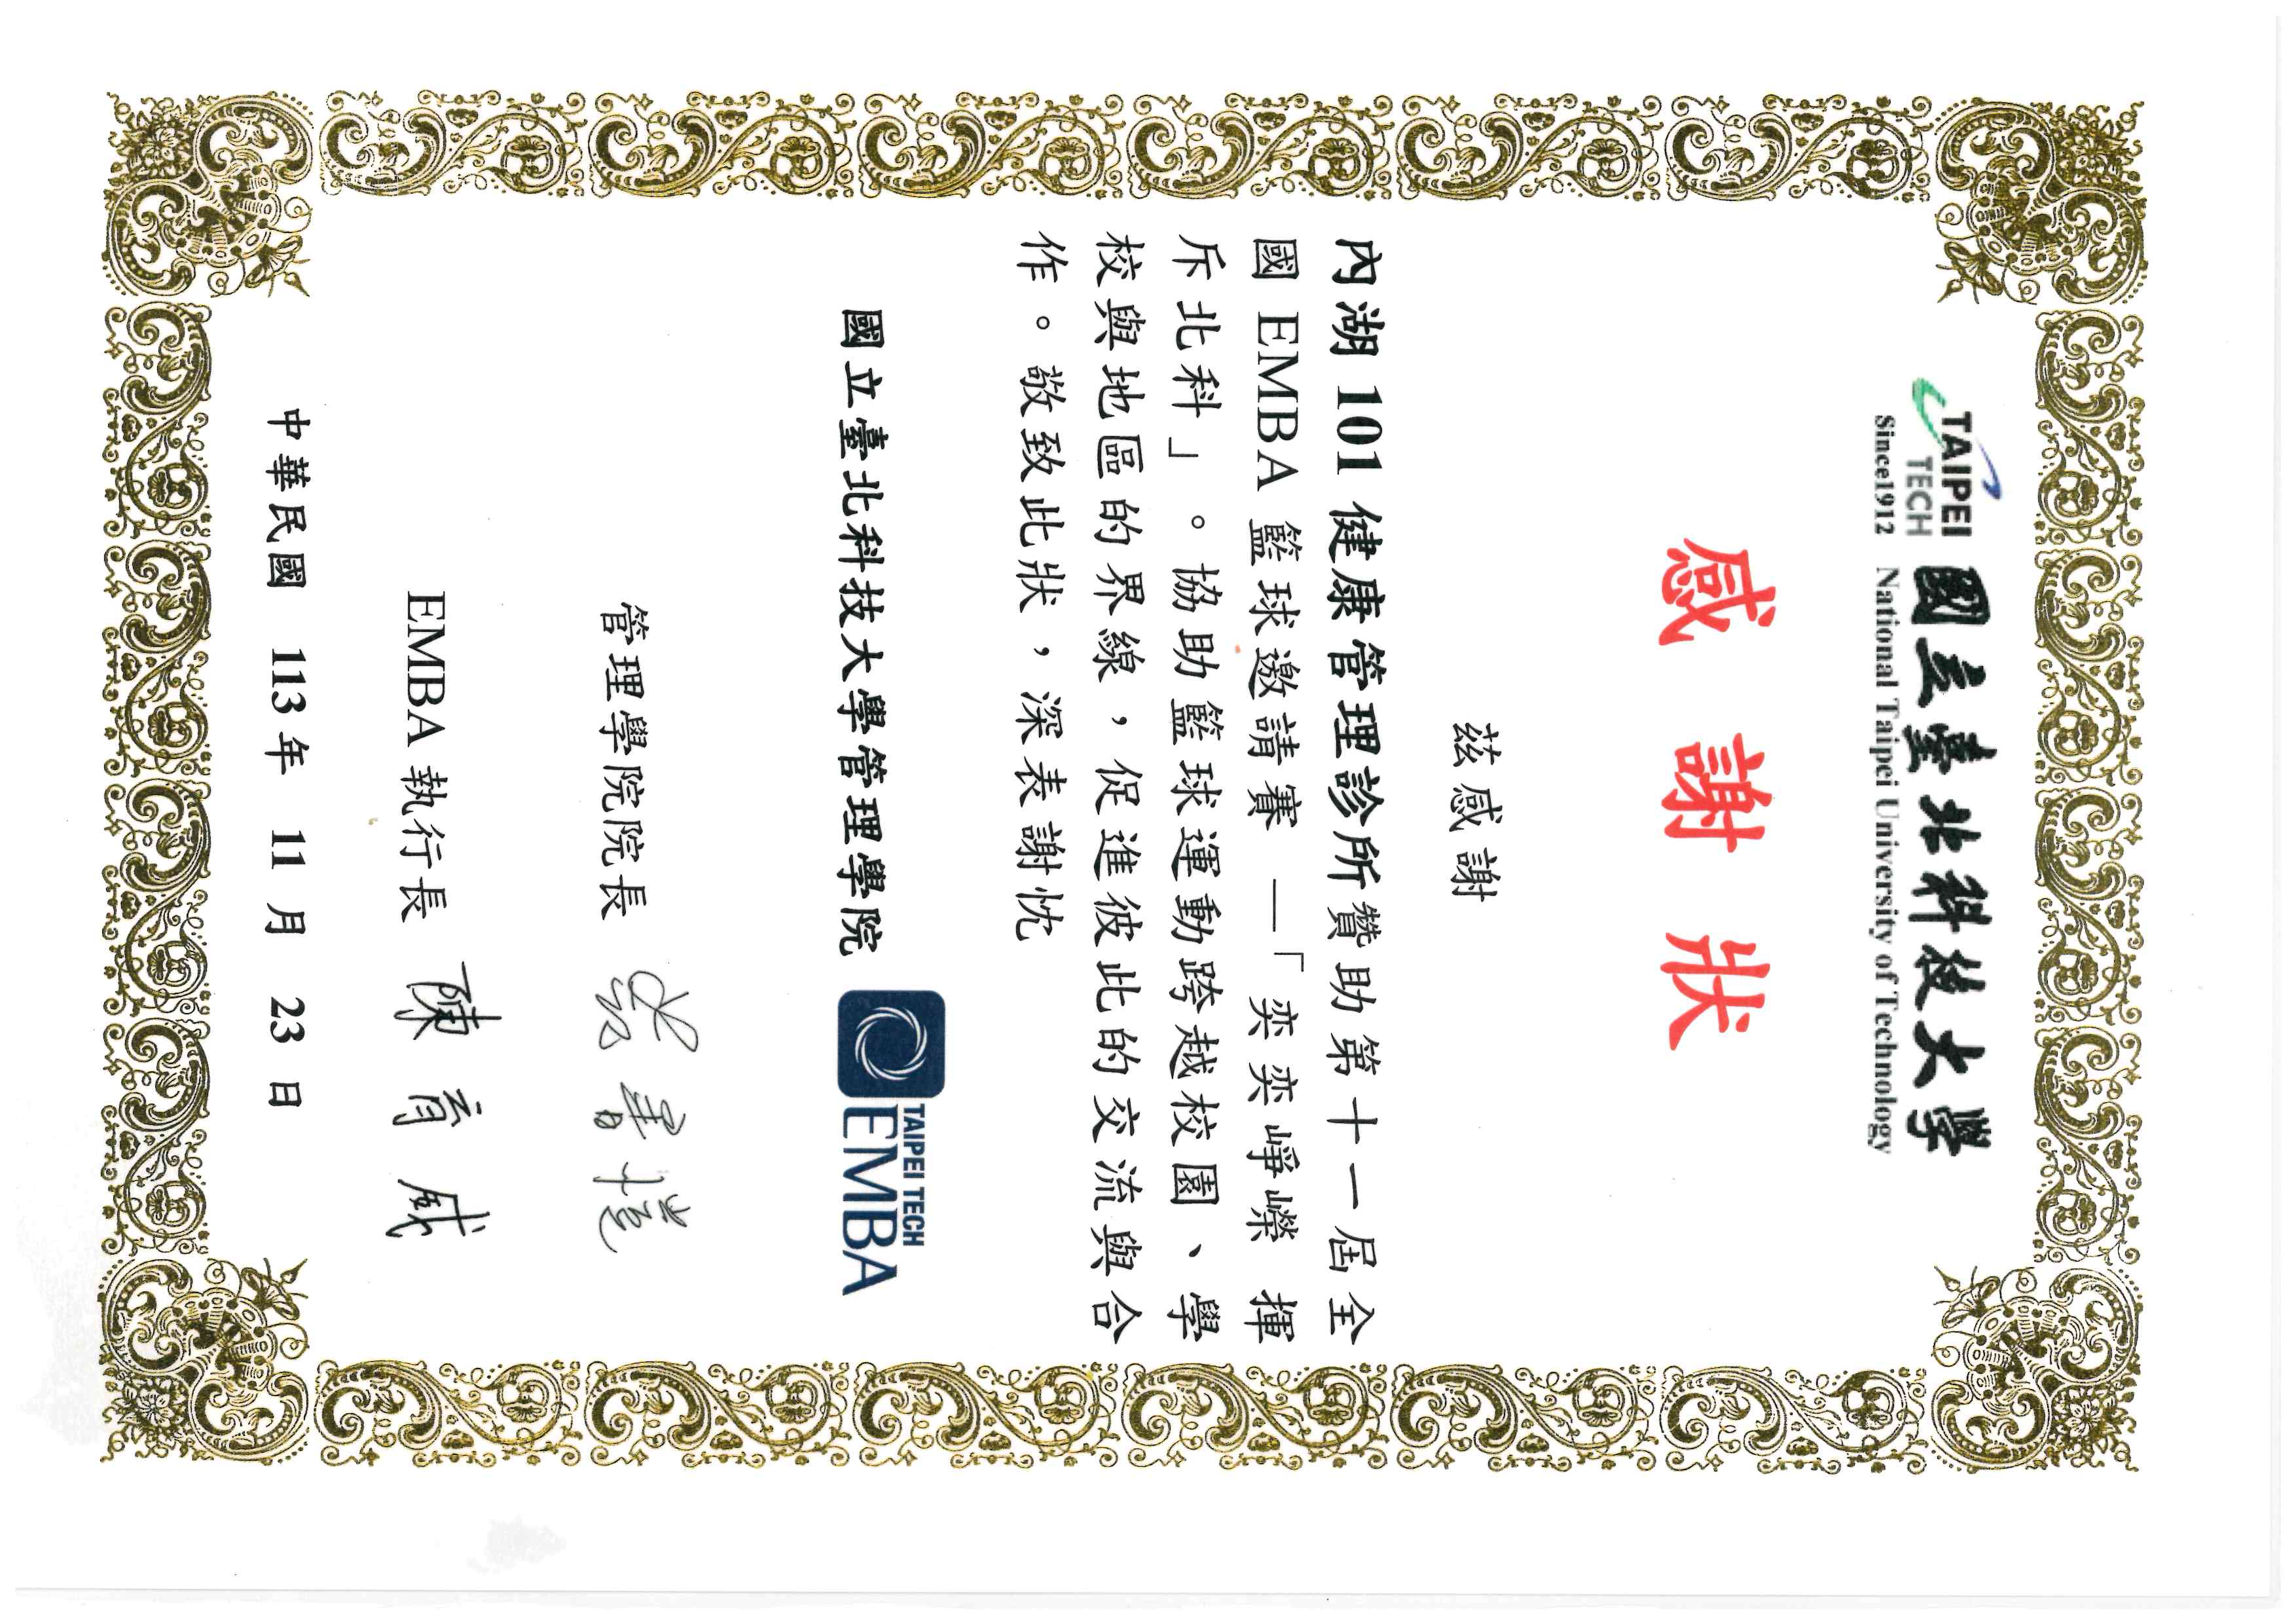 TAIPEI
TECH
Since1912
國立臺北科技大學
National Taipei University of Technology
感謝狀
茲感謝
內湖 101 健康管理診所贊助第十一屆全
國 EMBA 籃球邀請賽 —「奕奕崢嶸 揮
斥北科」。協助籃球運動跨越校園、學
校與地區的界線，促進彼此的交流與合
作。敬致此狀，深表謝忱
國立臺北科技大學管理學院
TAIPEI TECH
EMBA
管理學院院長
EMBA 執行長 陳育威
中華民國 113 年 11 月 23 日